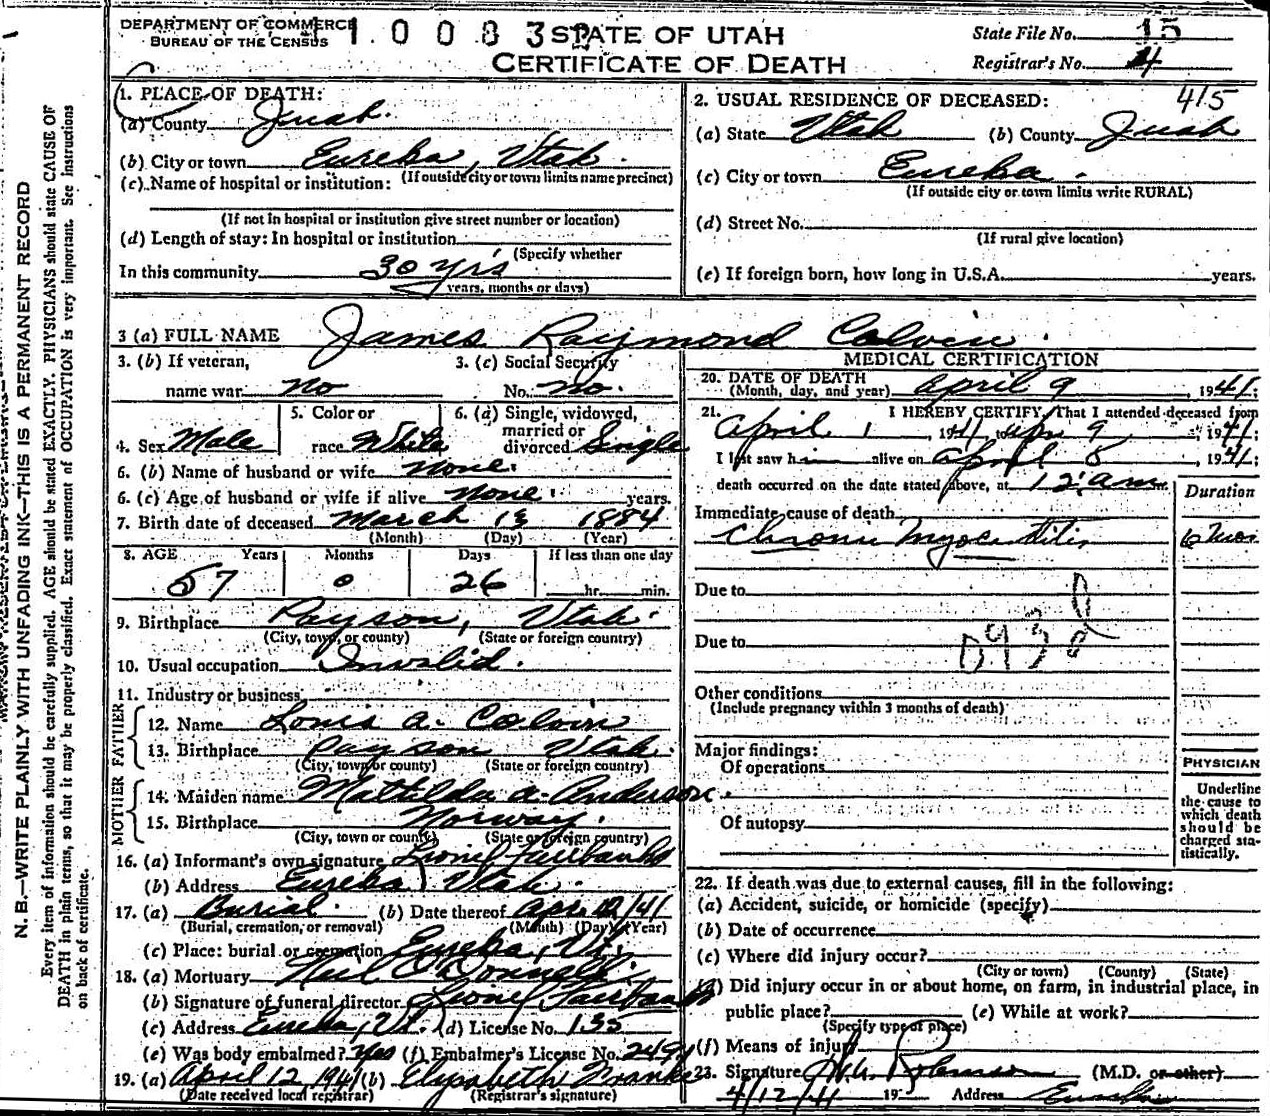 DEPARTMENT OF COMMERCE
BUREAU OF THE CENSUS
STATE OF UTAH
CERTIFICATE OF DEATH
State File No. 15
Registrar's No. 4
N. B.—WRITE PLAINLY WITH UNFADING INK—THIS IS A PERMANENT RECORD
Every item of information should be carefully supplied. AGE should be stated EXACTLY. PHYSICIANS should state CAUSE OF
DEATH in plain terms, so that it may be properly classified. Exact statement of OCCUPATION is very important. See instructions
on back of certificate.
1. PLACE OF DEATH:
(a) County Juab.
(b) City or town Eureka, Utah.
(If outside city or town limits name precinct)
(c) Name of hospital or institution:
(If not in hospital or institution give street number or location)
(d) Length of stay: In hospital or institution
(Specify whether
In this community 30 yrs
years, months or days)
2. USUAL RESIDENCE OF DECEASED: 415
(a) State Utah (b) County Juab
(c) City or town Eureka.
(If outside city or town limits write RURAL)
(d) Street No.
(If rural give location)
(e) If foreign born, how long in U.S.A. years.
3 (a) FULL NAME James Raymond Colvin.
3. (b) If veteran,
name war no
3. (c) Social Security
No. no.
4. Sex Male
5. Color or
race White
6. (a) Single, widowed,
married or
divorced Single
6. (b) Name of husband or wife none.
6. (c) Age of husband or wife if alive none. years.
7. Birth date of deceased March 13 1884
(Month) (Day) (Year)
8. AGE Years Months Days If less than one day
57 0 26 hr. min.
9. Birthplace Payson, Utah.
(City, town, or county) (State or foreign country)
10. Usual occupation Invalid.
11. Industry or business
FATHER
12. Name Louis A. Colvin
13. Birthplace Payson Utah.
(City, town or county) (State or foreign country)
MOTHER
14. Maiden name Mathilda A. Anderson.
15. Birthplace Norway.
(City, town or county) (State or foreign country)
16. (a) Informant's own signature Lionel Fairbanks
(b) Address Eureka, Utah.
17. (a) Burial. (b) Date thereof Apr. 12/41
(Burial, cremation, or removal) (Month) (Day) (Year)
(c) Place: burial or cremation Eureka, Ut.
18. (a) Mortuary Neil O'Donnell.
(b) Signature of funeral director Lionel Fairbanks
(c) Address Eureka, Ut. (d) License No. 135
(e) Was body embalmed? Yes (f) Embalmer's License No. 249
19. (a) April 12, 1941 (b) Elyzabeth Franks
(Date received local registrar) (Registrar's signature)
MEDICAL CERTIFICATION
20. DATE OF DEATH
(Month, day, and year) April 9, 1941.
21. I HEREBY CERTIFY, That I attended deceased from
April 1, 1941 to Apr 9, 1941;
I last saw him alive on April 8, 1941;
death occurred on the date stated above, at 12:am.
Duration
Immediate cause of death
Chronic Myocarditis
Due to
Due to
093
Other conditions
(Include pregnancy within 3 months of death)
Major findings:
Of operations
Of autopsy
PHYSICIAN
Underline
the cause to
which death
should be
charged sta-
tistically.
22. If death was due to external causes, fill in the following:
(a) Accident, suicide, or homicide (specify)
(b) Date of occurrence
(c) Where did injury occur?
(City or town) (County) (State)
(d) Did injury occur in or about home, on farm, in industrial place, in
public place? (e) While at work?
(Specify type of place)
(f) Means of injury
23. Signature Robinson (M.D. or other)
4/12/41 19 Address Eureka